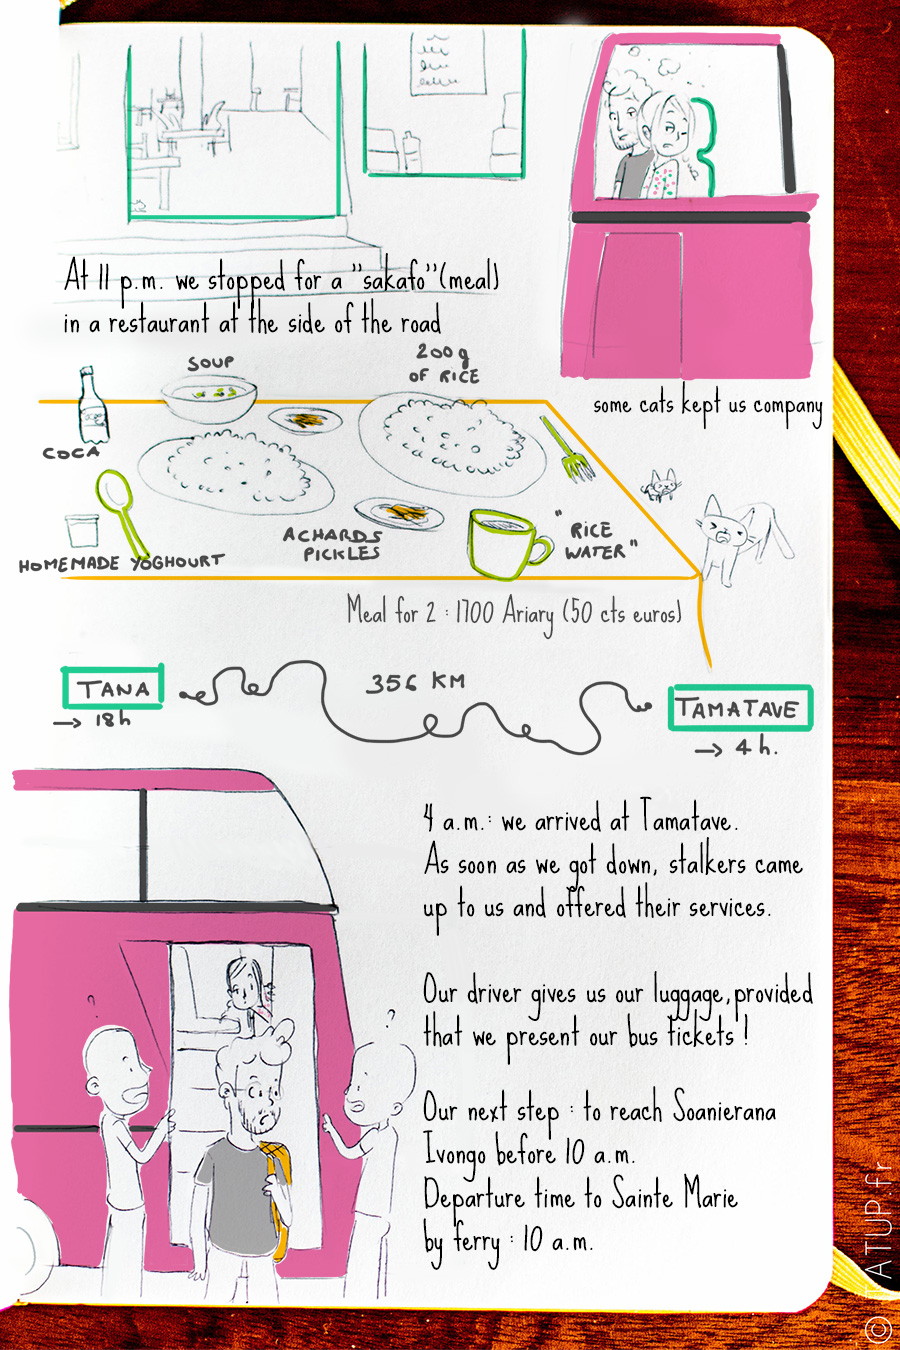 At 11 p.m. we stopped for a "sakafo" (meal)
in a restaurant at the side of the road
some cats kept us company
SOUP
200g
OF RICE
COCA
ACHARDS
PICKLES
"RICE
WATER"
HOMEMADE YOGHOURT
Meal for 2 : 1700 Ariary (50 cts euros)
TANA
→ 18h
356 KM
TAMATAVE
→ 4 h.
4 a.m.: we arrived at Tamatave.
As soon as we got down, stalkers came
up to us and offered their services.
?
?
Our driver gives us our luggage, provided
that we present our bus tickets !
Our next step : to reach Soanierana
Ivongo before 10 a.m.
Departure time to Sainte Marie
by ferry : 10 a.m.
© TATUP.fr